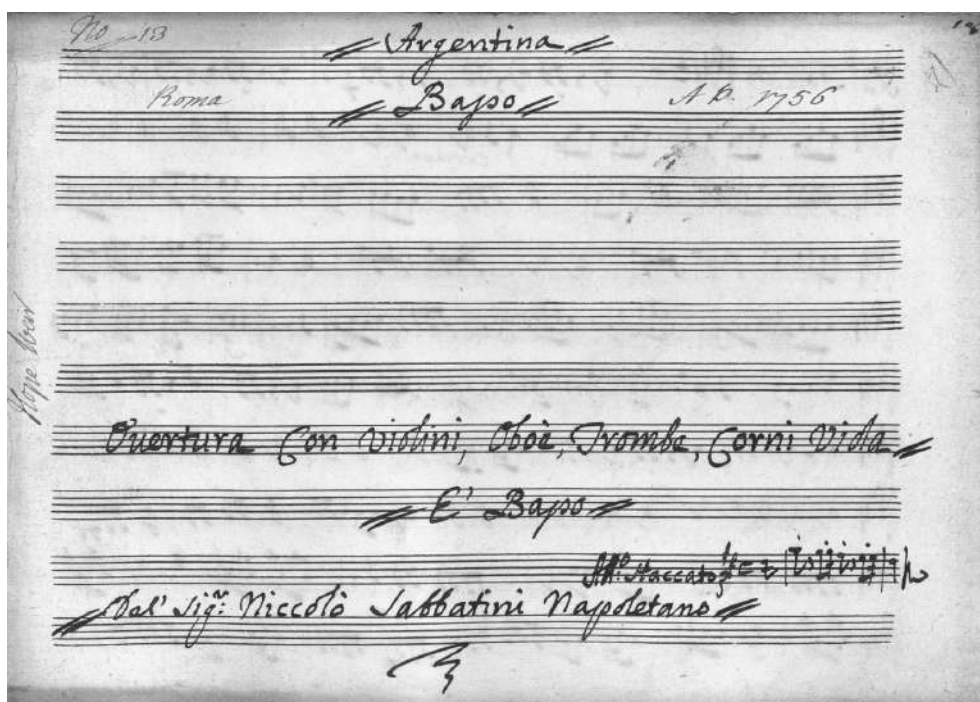 No 13
Argentina
Roma Basso A D. 1756
Ouertura Con Violini, Oboè, Trombe, Corni Viola
E' Basso
All.º Staccato
Dal' Sig.re Niccolò Sabbatini Napoletano